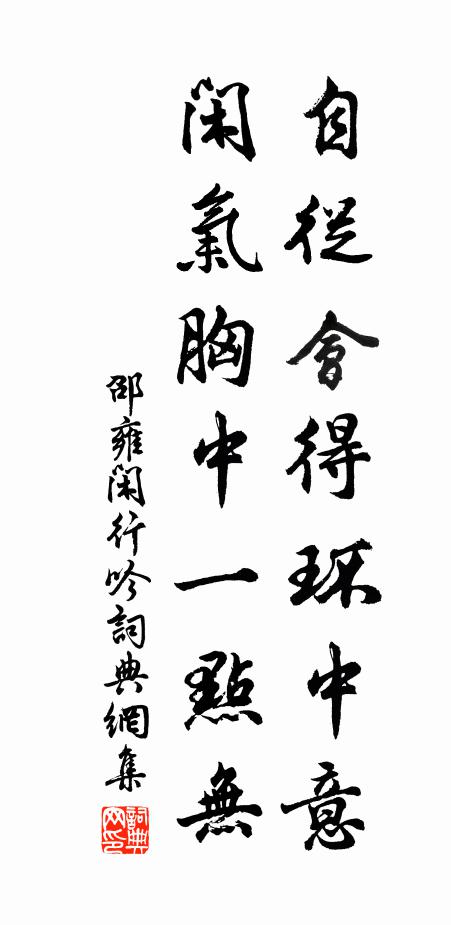 自從會得環中意
閑氣胸中一點無
邵雍閑行吟詞典網集
詞典
网印